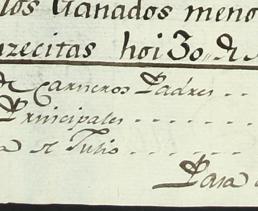 los Ganados meno
azecitas hoi 30„ de
de Carneros Padres . .
Principales . . . . . .
a de Julio . . . . . .
Para